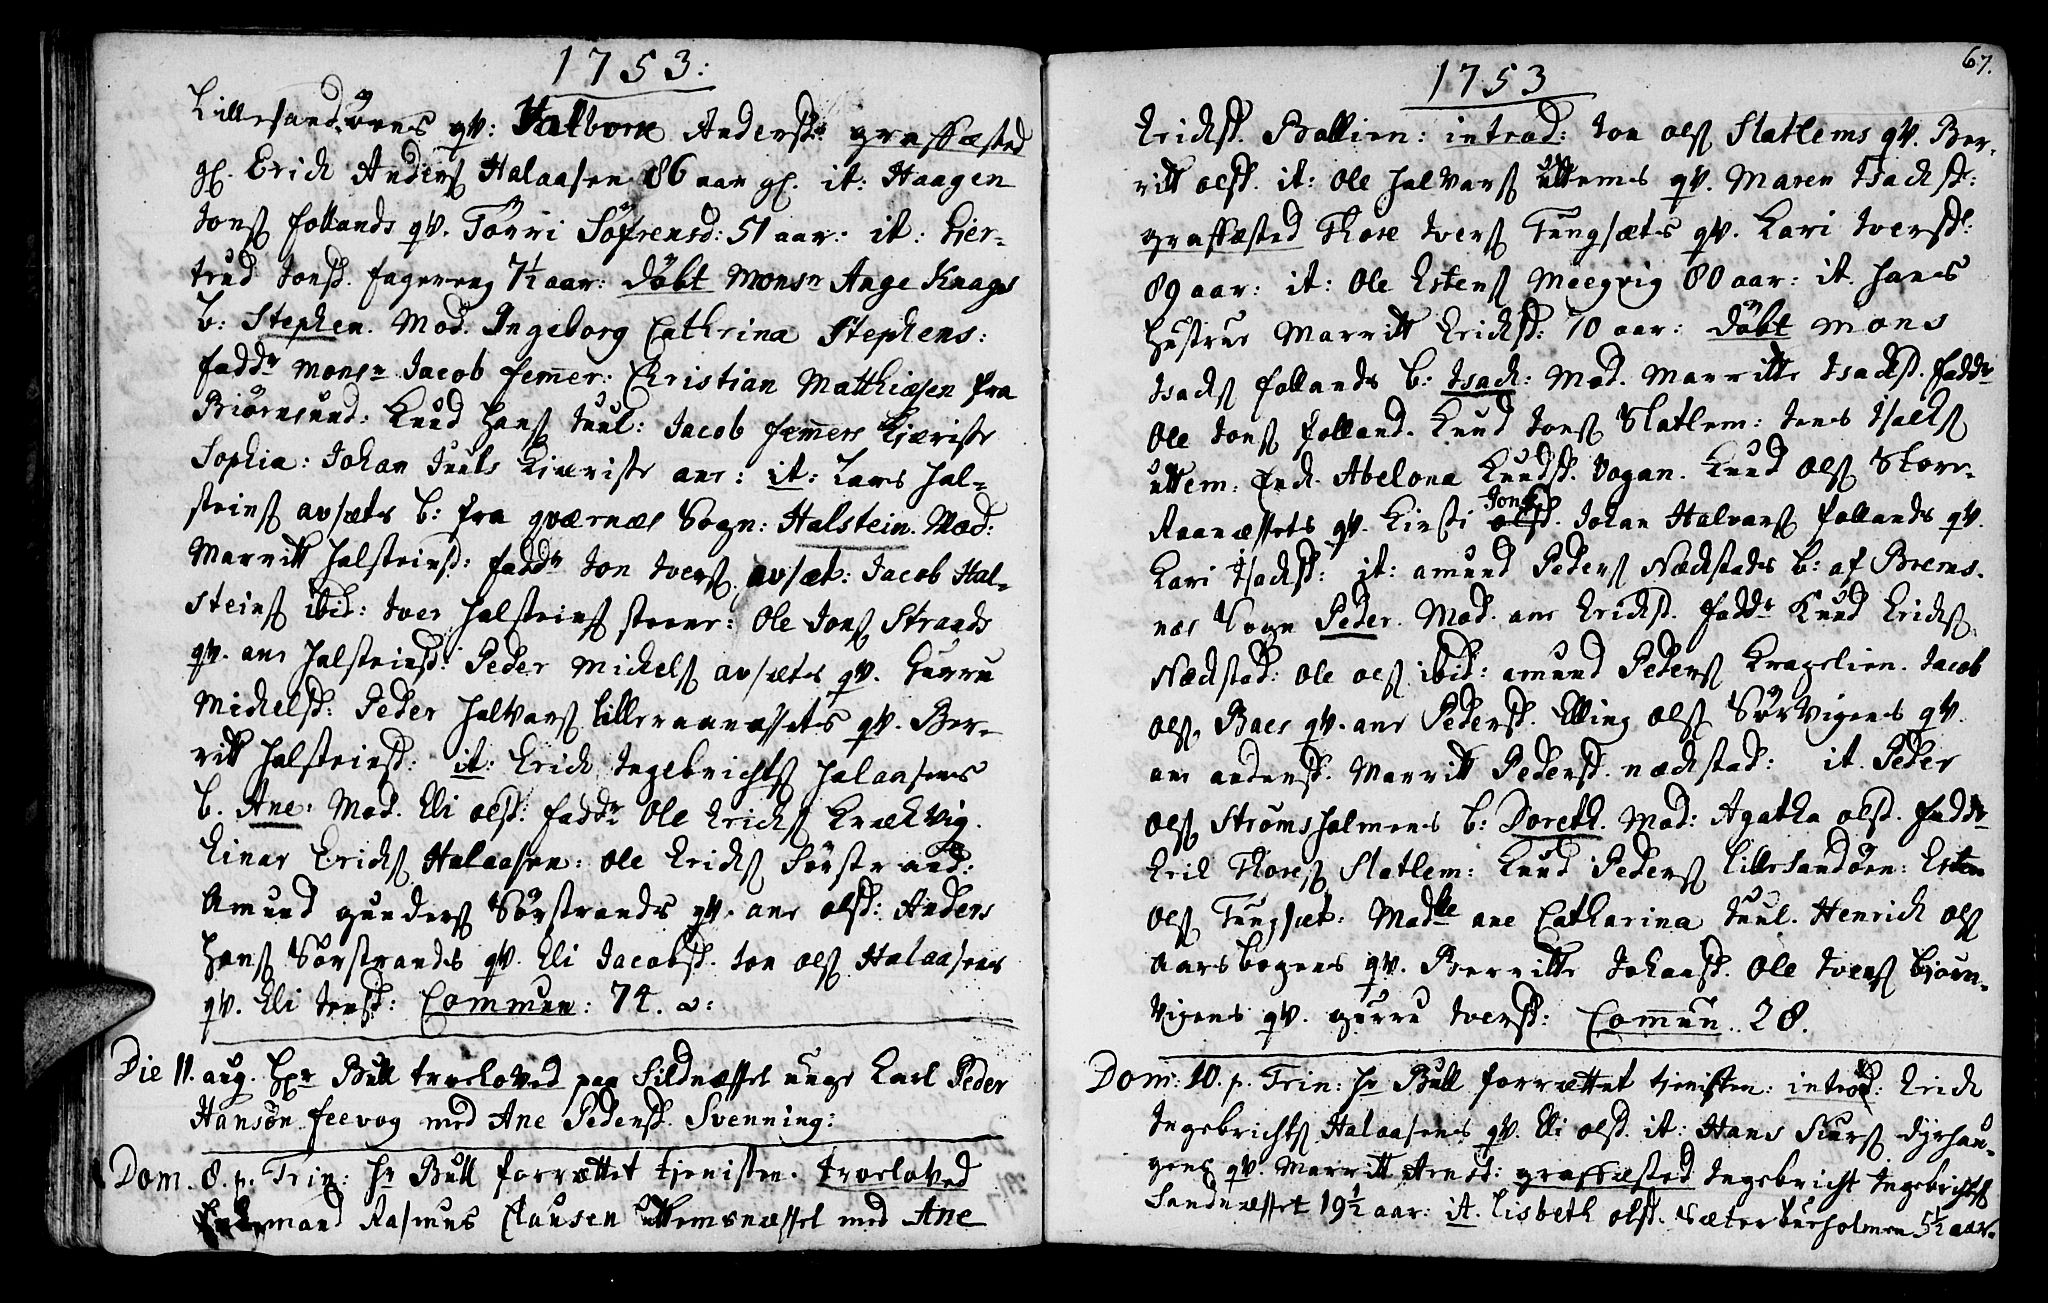 1753:
Lillesandöens qv: Valbore Andersd: graffæsted
gl. Erich Anders Halaasen 86 aar gl. it: Haagen
Jons follands qv. Törri Söfrensd: 51 aar: it: Gier-
trud Jonsd. fagereng 7½ aar: döbt Monsr Ange Knags
b: Stephen. Mod. Ingeborg Cathrina Stephens:
faddr monsr Jacob femer: Christian Matthiasen fra
Biörnsund: Knud Hans Juul: Jacob femers Kieriste
Sophia: Johan Juuls Kieriste ane: it: Lars Hal-
steins avsæts b: fra qværnæs Sogn: Halstein. Mod:
Marritt Halsteinsd: faddr Jon Ivers avsæt: Jacob Hal-
steins ibid: Iver Halsteins steene: Ole Jons Strands
qv. ane Halsteinsd: Peder Michels avsæts qv. Gurru
Michelsd: Peder Halvars Lilleraanæssets qv. Ber-
ritt Halsteinsd: it: Erich Ingebrichts Halaasens
b. Ane: Mod. Eli olsd: faddr Ole Erichs Krækvig.
Einar Erichs Halaasen: Ole Erichs Sörstrand:
Amund gunders Sörstrands qv. ane olsd: Anders
Hans Sörstrands qv. Eli Jacobsd. Jon ols Halaasens
qv. Eli Jensd: Commun: 74. a:
Die 11. aug. Hr Bull troeloved paa Sildnæsset unge Karl Peder
Hansön feevog med Ane Pedersd. Svenning:
Dom. 8. p. Trin: Hr Bull forrættet tjenisten. troeloved
Enkemand Rasmus Clausen Uttemsnæsset med Ane
67.
1753
Erichsd. Bollien: introd: Jon ols Slatlems qv. Ber-
ritt olsd. it: Ole Halvars Uttems qv. Maren Isachsd:
graffæsted Thore Ivers Tungsæts qv. Kari Iversd:
89 aar: it: Ole Estens Meegvig 80 aar: it. Hans
Hustrue Marritt Erichsd: 70 aar: döbt Mons
Isachs follands b: Isach: Mod. Marritte Isachsd. faddr
Ole Jons folland. Knud Jons Slatlem: Jens Isachs
uttem: Enk. Abelona Knudsd. Vogan. Knud ols Store-
Raanæssets qv. Kirsti Jonsd. Johan Halvars follands qv.
Kari Isachsd: it: amund Peders Nædstads b: af Brems-
næs Sogn Peder. Mod. ane Erichsd. faddr Knud Erichs
Nædstad: Ole ols ibid: amund Peders Kragelien. Jacob
ols Baes qv. ane Pedersd. Elling ols Sörvigens qv.
ane andersd. Marritt Pedersd. nædstad: it. Peder
ols Strømsholmens b: Doreth. Mod: Agatha olsd. faddr
Eril Thores Slatlem: Knud Peders Lillesandöen: Esten
ols Tungsæt: Madlle ane Catharina Juul. Henrich ols
Aarsbogens qv. Berritte Johansd. Ole Ivers Bjørn-
vigens qv. gurru Iversd: Comun. 28.
Dom: 10. p. Trin: Hr Bull forrættet tjenisten: introd: Erich
Ingebrichts Halaasens qv. Eli olsd. it: Hans Siurs Dyrhau-
gens qv. Marritt Arnsd: graffæsted Ingebricht Ingebrichts
Sandnæsset 19½ aar: it. Lisbeth olsd. Sæterbueholmen 5½ aar.